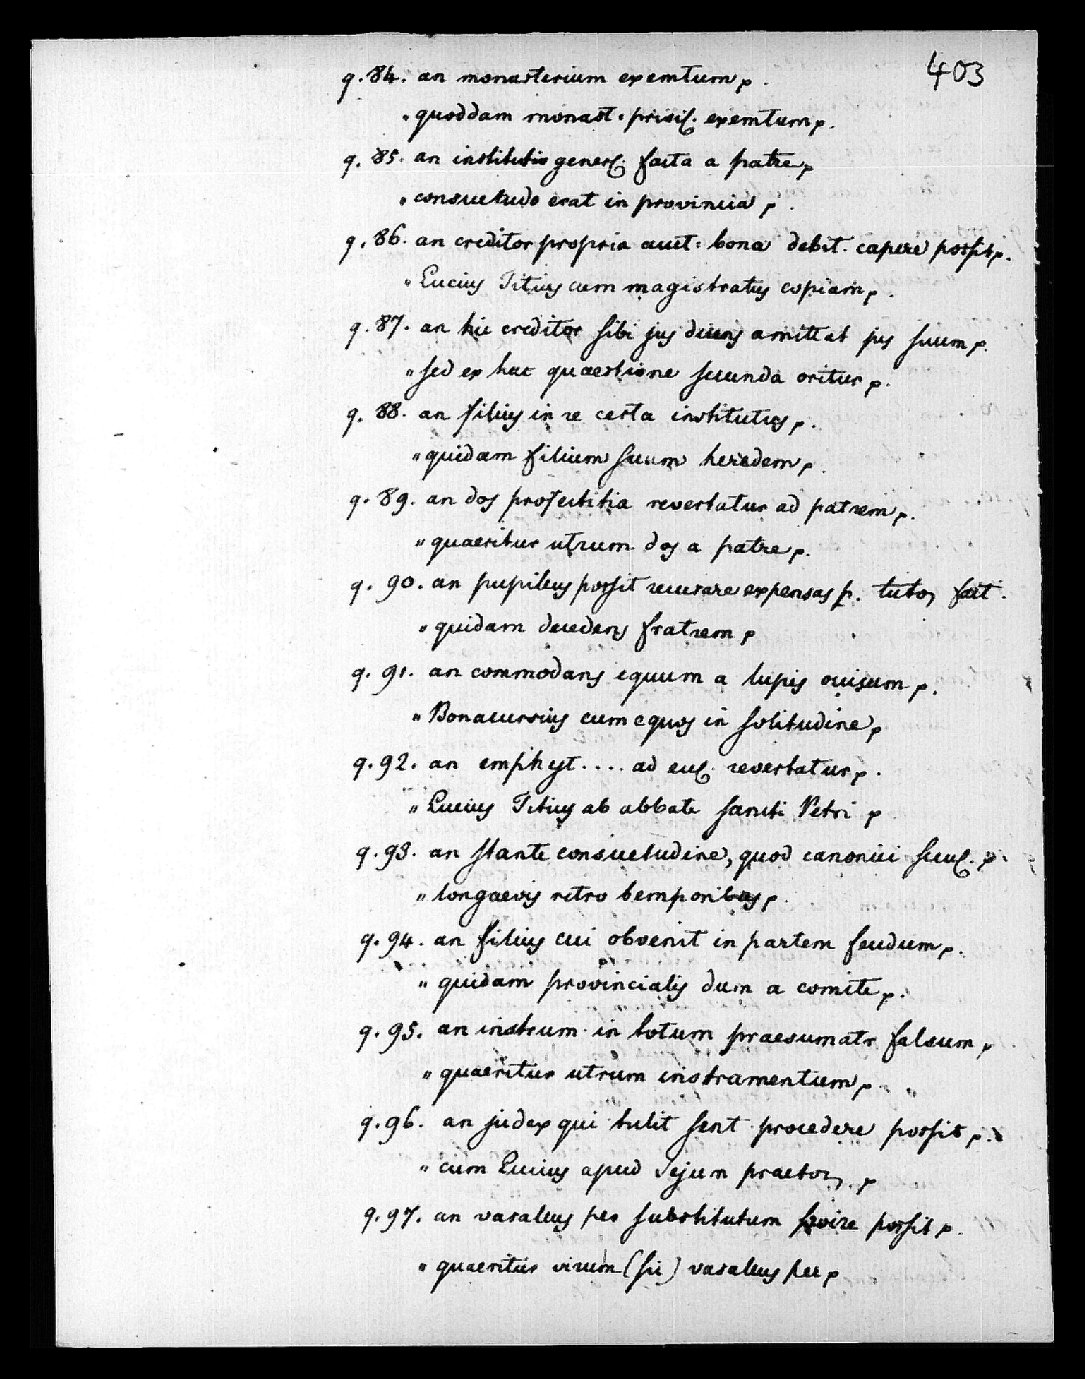 403
q. 84. an monasterium exemtum p.
" quoddam monast. privil. exemtum p.
q. 85. an institutio general. facta a patre p
" consuetudo erat in provincia p.
q. 86. an creditor propria auct. bona debit. capere possit p.
" Lucius Titius cum magistratus copiam p.
q. 87. an hic creditor sibi jus dicens amittat jus suum p.
" sed ex hac quaestione secunda oritur p.
q. 88. an filius in re certa institutus p.
" quidam filium suum heredem p.
q. 89. an dos profectitia revertatur ad patrem p.
" quaeritur utrum dos a patre p.
q. 90. an pupillus possit recusare expensas p. tutor fact.
" quidam decedens fratrem p
q. 91. an commodans equum a lupis ouisum p.
" Bonacursius cum equos in solitudine p
q. 92. an emphyt .... ad eccl. revertatur p.
" Lucius Titius ab abbate sancti Petri p
q. 93. an stante consuetudine, quod canonici p.
" longaevis retro temporibus p.
q. 94. an filius cui obvenit in partem feudum p.
" quidam provincialis dum a comite p.
q. 95. an instrum. in totum praesumatr falsum p
" quaeritur utrum instramentum p.
q. 96. an judex qui tulit sent procedere possit p.
" cum Lucius apud Sejum praetor p
q. 97. an vasallus per substitutum possit p.
" quaeritur virum (sic) vasallus per p